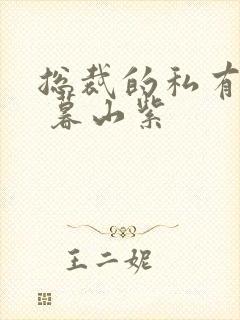 总裁的私有
暮山紫
王二妮